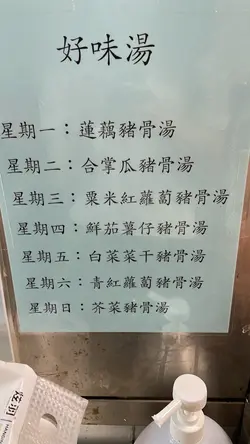 好味湯
星期一：蓮藕豬骨湯
星期二：合掌瓜豬骨湯
星期三：粟米紅蘿蔔豬骨湯
星期四：鮮茄薯仔豬骨湯
星期五：白菜菜干豬骨湯
星期六：青紅蘿蔔豬骨湯
星期日：芥菜豬骨湯